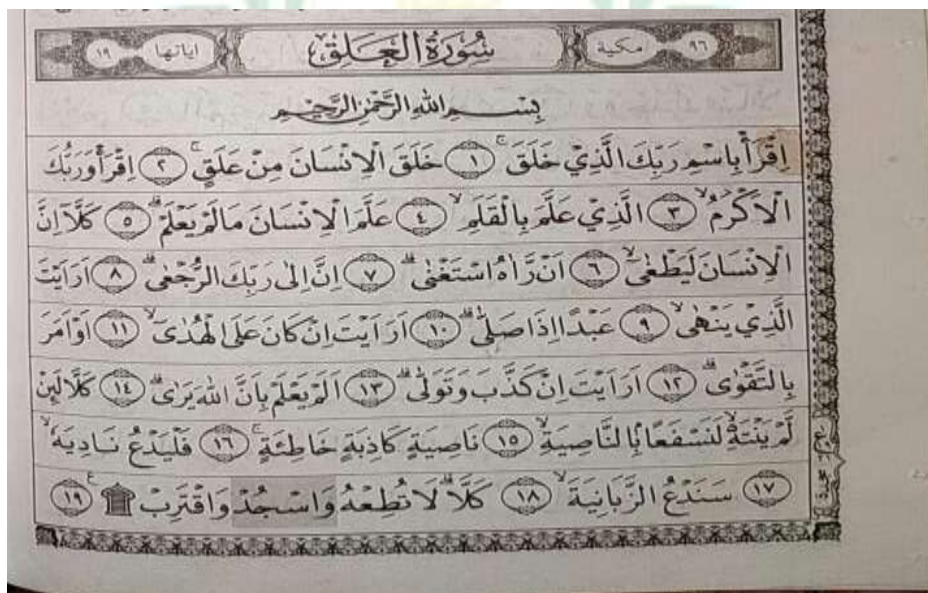 ٩٦ مكية سُوْرَةُ الْعَلَقِ اياتها ١٩
بِسْمِ اللهِ الرَّحْمٰنِ الرَّحِيْمِ
اِقْرَأْ بِاسْمِ رَبِّكَ الَّذِيْ خَلَقَ ۚ ١ خَلَقَ الْاِنْسَانَ مِنْ عَلَقٍ ۚ ٢ اِقْرَأْ وَرَبُّكَ
الْاَكْرَمُ ۙ ٣ الَّذِيْ عَلَّمَ بِالْقَلَمِ ۙ ٤ عَلَّمَ الْاِنْسَانَ مَالَمْ يَعْلَمْ ۗ ٥ كَلَّآ اِنَّ
الْاِنْسَانَ لَيَطْغٰى ۙ ٦ اَنْ رَّاٰهُ اسْتَغْنٰى ۗ ٧ اِنَّ اِلٰى رَبِّكَ الرُّجْعٰى ۗ ٨ اَرَاَيْتَ
الَّذِيْ يَنْهٰى ۙ ٩ عَبْدًا اِذَا صَلّٰى ۗ ١٠ اَرَاَيْتَ اِنْ كَانَ عَلَى الْهُدٰىٓ ۙ ١١ اَوْ اَمَرَ
بِالتَّقْوٰى ۗ ١٢ اَرَاَيْتَ اِنْ كَذَّبَ وَتَوَلّٰى ۗ ١٣ اَلَمْ يَعْلَمْ بِاَنَّ اللهَ يَرٰى ۗ ١٤ كَلَّا لَئِنْ
لَّمْ يَنْتَهِ ۙ لَنَسْفَعًا بِالنَّاصِيَةِ ۙ ١٥ نَاصِيَةٍ كَاذِبَةٍ خَاطِئَةٍ ۚ ١٦ فَلْيَدْعُ نَادِيَهٗ ۙ
١٧ سَنَدْعُ الزَّبَانِيَةَ ۙ ١٨ كَلَّا ۗ لَا تُطِعْهُ وَاسْجُدْ وَاقْتَرِبْ ۩ ۚ ١٩